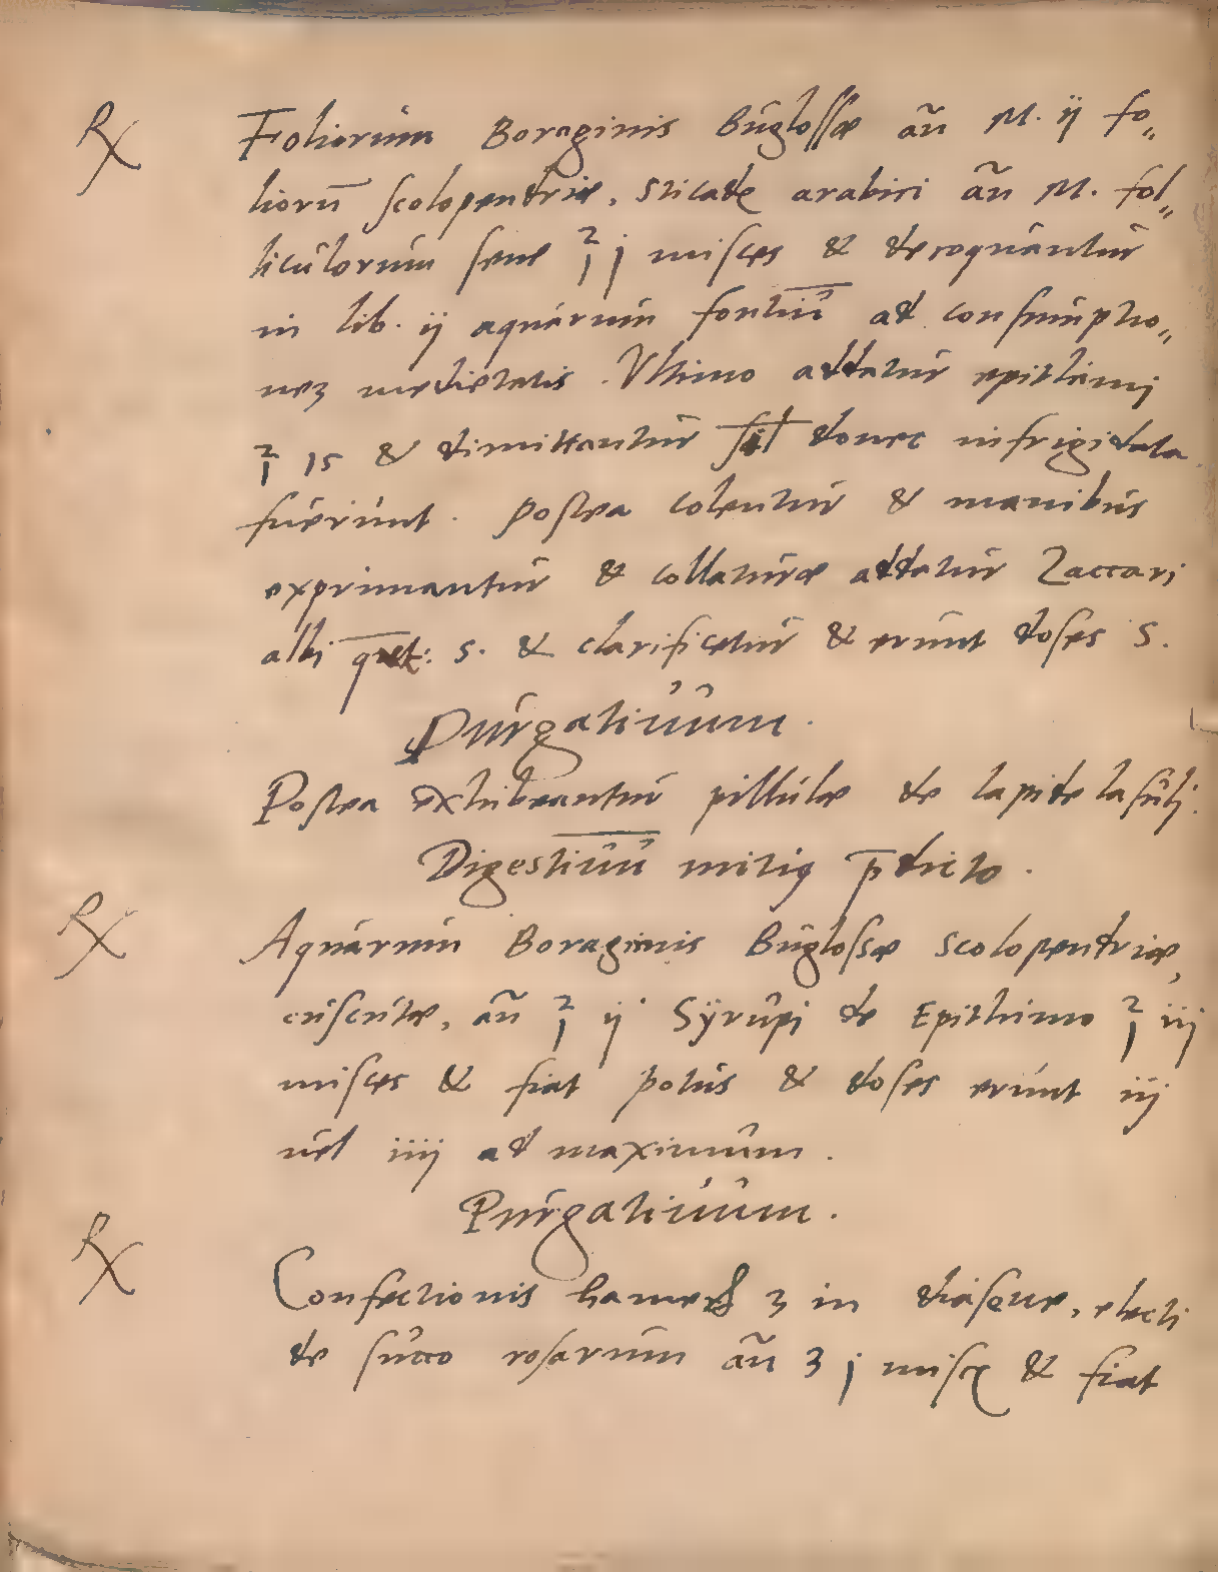 ℞ Foliorum Boraginis Buglossæ añ M. ij fo„
liorū scolopendriæ, sticade arabici añ M. fol„
liculorum sene ℥ j misces & decoquantur
in lib. ij aquarum fontiū ad consumptio„
neʒ medietatis. Ultimo addatur epithimj
℥ js & dimittantur donec infrigidata
fuerunt. postea colentur & manibus
exprimantur & collaturæ addatur Zaccari
albj q: s. & clarificetur & erunt doses 5.
Purgatiuum.
Postea exhibeantur pillulæ de lapide lasulj.
Digestiuū mitiꝰ p̄dicto.
℞ Aquarum Boraginis Buglossæ scolopendriæ,
cuscutæ, añ ℥ ij Syrupi de Epithimo ℥ iij
misces & fiat potus & doses erunt iij
uel iiij ad maximum.
Purgatiuum.
℞ Confectionis hamech ʒ iii diasene, electi
de succo rosarum añ ʒ j misce & fiat